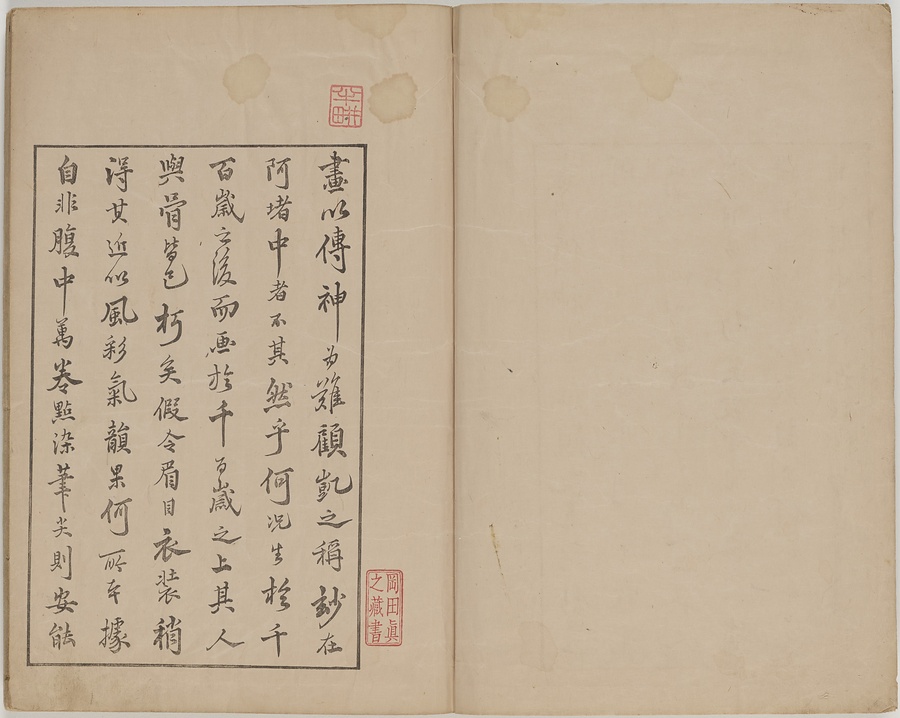 畫以傳神為難顧凱之稱妙在
阿堵中者不其然乎何況生於千
百歲之後而画於千百歲之上其人
與骨皆已朽矣假令眉目衣裝稍
得其近似風彩氣韻果何所本據
自非腹中萬卷點染筆尖則安能
岡田眞
之藏書